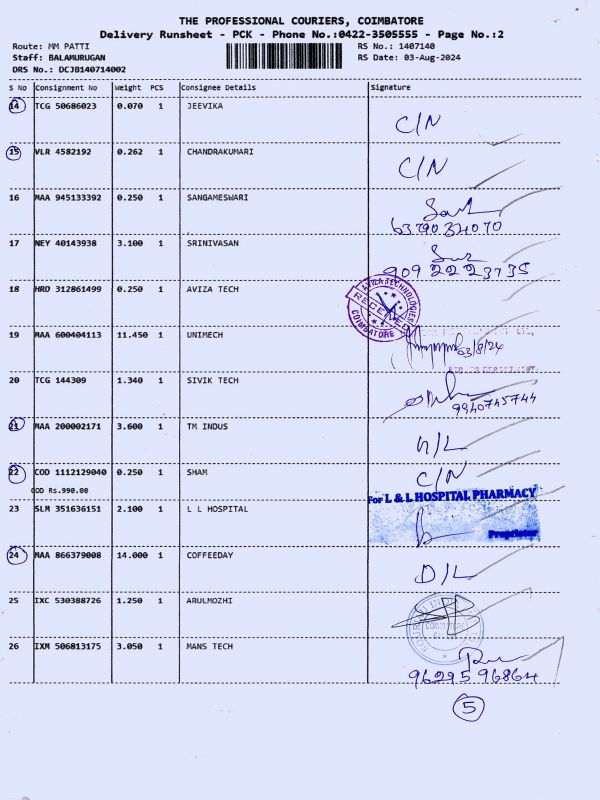 THE PROFESSIONAL COURIERS, COIMBATORE
Delivery Runsheet - PCK - Phone No.:0422-3505555 - Page No.:2
Route: MM PATTI
RS No.: 1407140
Staff: BALAMURUGAN
RS Date: 03-Aug-2024
DRS No.: DCJB140714002
S No Consignment No Weight PCS Consignee Details Signature
14 TCG 50686023 0.070 1 JEEVIKA
C/N
15 VLR 4582192 0.262 1 CHANDRAKUMARI
C/N
16 MAA 945133392 0.250 1 SANGAMESWARI
6379034070
17 NEY 40143938 3.100 1 SRINIVASAN
909 222 3735
18 HRD 312861499 0.250 1 AVIZA TECH
AVIZA TECHNOLOGIES
RECEIVED
COIMBATORE
19 MAA 600404113 11.450 1 UNIMECH
03/8/24
20 TCG 144309 1.340 1 SIVIK TECH
9940745744
21 MAA 200002171 3.600 1 TM INDUS
22 COD 1112129040 0.250 1 SHAM
C/N
COD Rs.990.00
For L & L HOSPITAL PHARMACY
23 SLM 351636151 2.100 1 L L HOSPITAL
Proprietor
24 MAA 866379008 14.000 1 COFFEEDAY
D/L
25 IXC 530388726 1.250 1 ARULMOZHI
26 IXM 506813175 3.050 1 MANS TECH
96295 96864
5